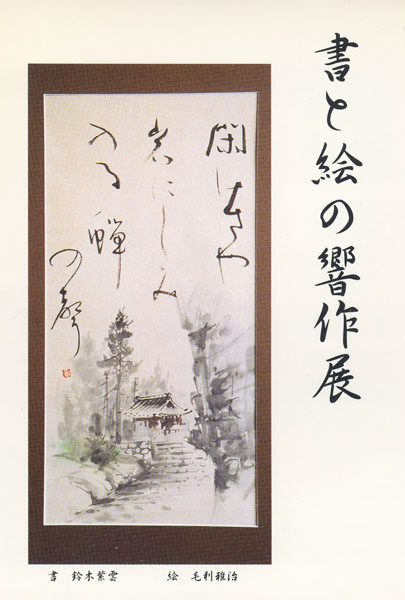 書と絵の響作展
閑けさや
岩にしみ
入る蝉
の聲
書 鈴木紫雲 絵 毛利雅治